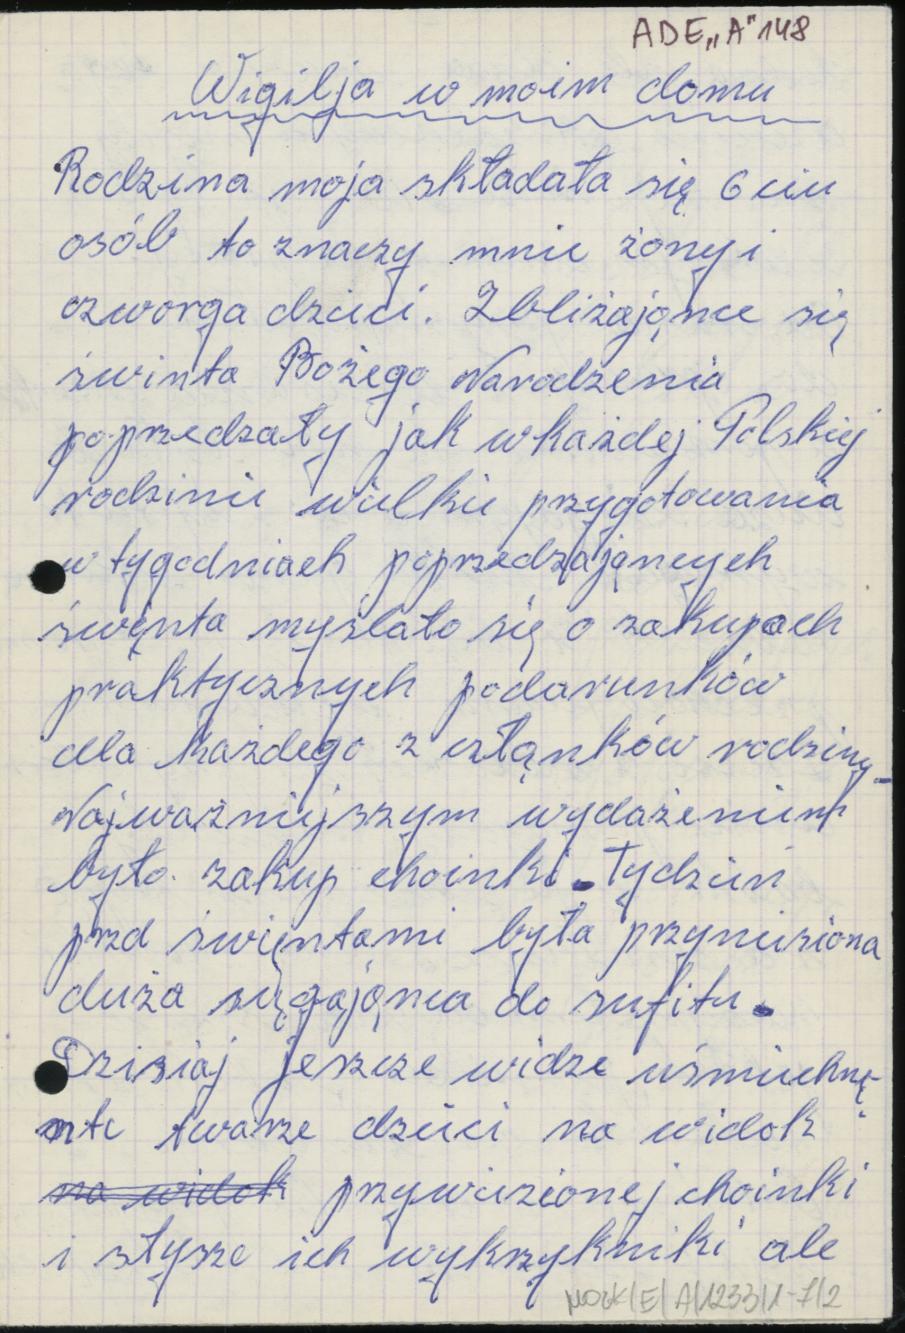 ADE„A"148
Wigilja w moim domu
Rodzina moja składała się 6 ciu
osób to znaczy mnie żony i
czworga dzieci. Zbliżające się
świnta Bożego Narodzenia
poprzedzały jak w każdej Polskiej
rodzinie wielkie przygotowania
w tygodniach poprzedzajoncych
święnta myslało się o zakupach
praktycznych podarunków
dla każdego z cztąnków rodziny
Najważniejszym wydażeniem
było zakup choinki. Tydzień
przd święntami była przyniesiona
duża sięgająnca do sufitu.
Dzisiaj jeszcze widze uśmiechnę-
nte twarze dzieci na widok
na widok przywiezionej choinki
i słysze ich wykrzykniki ale
MOLK/E/A/1233/1-7/2